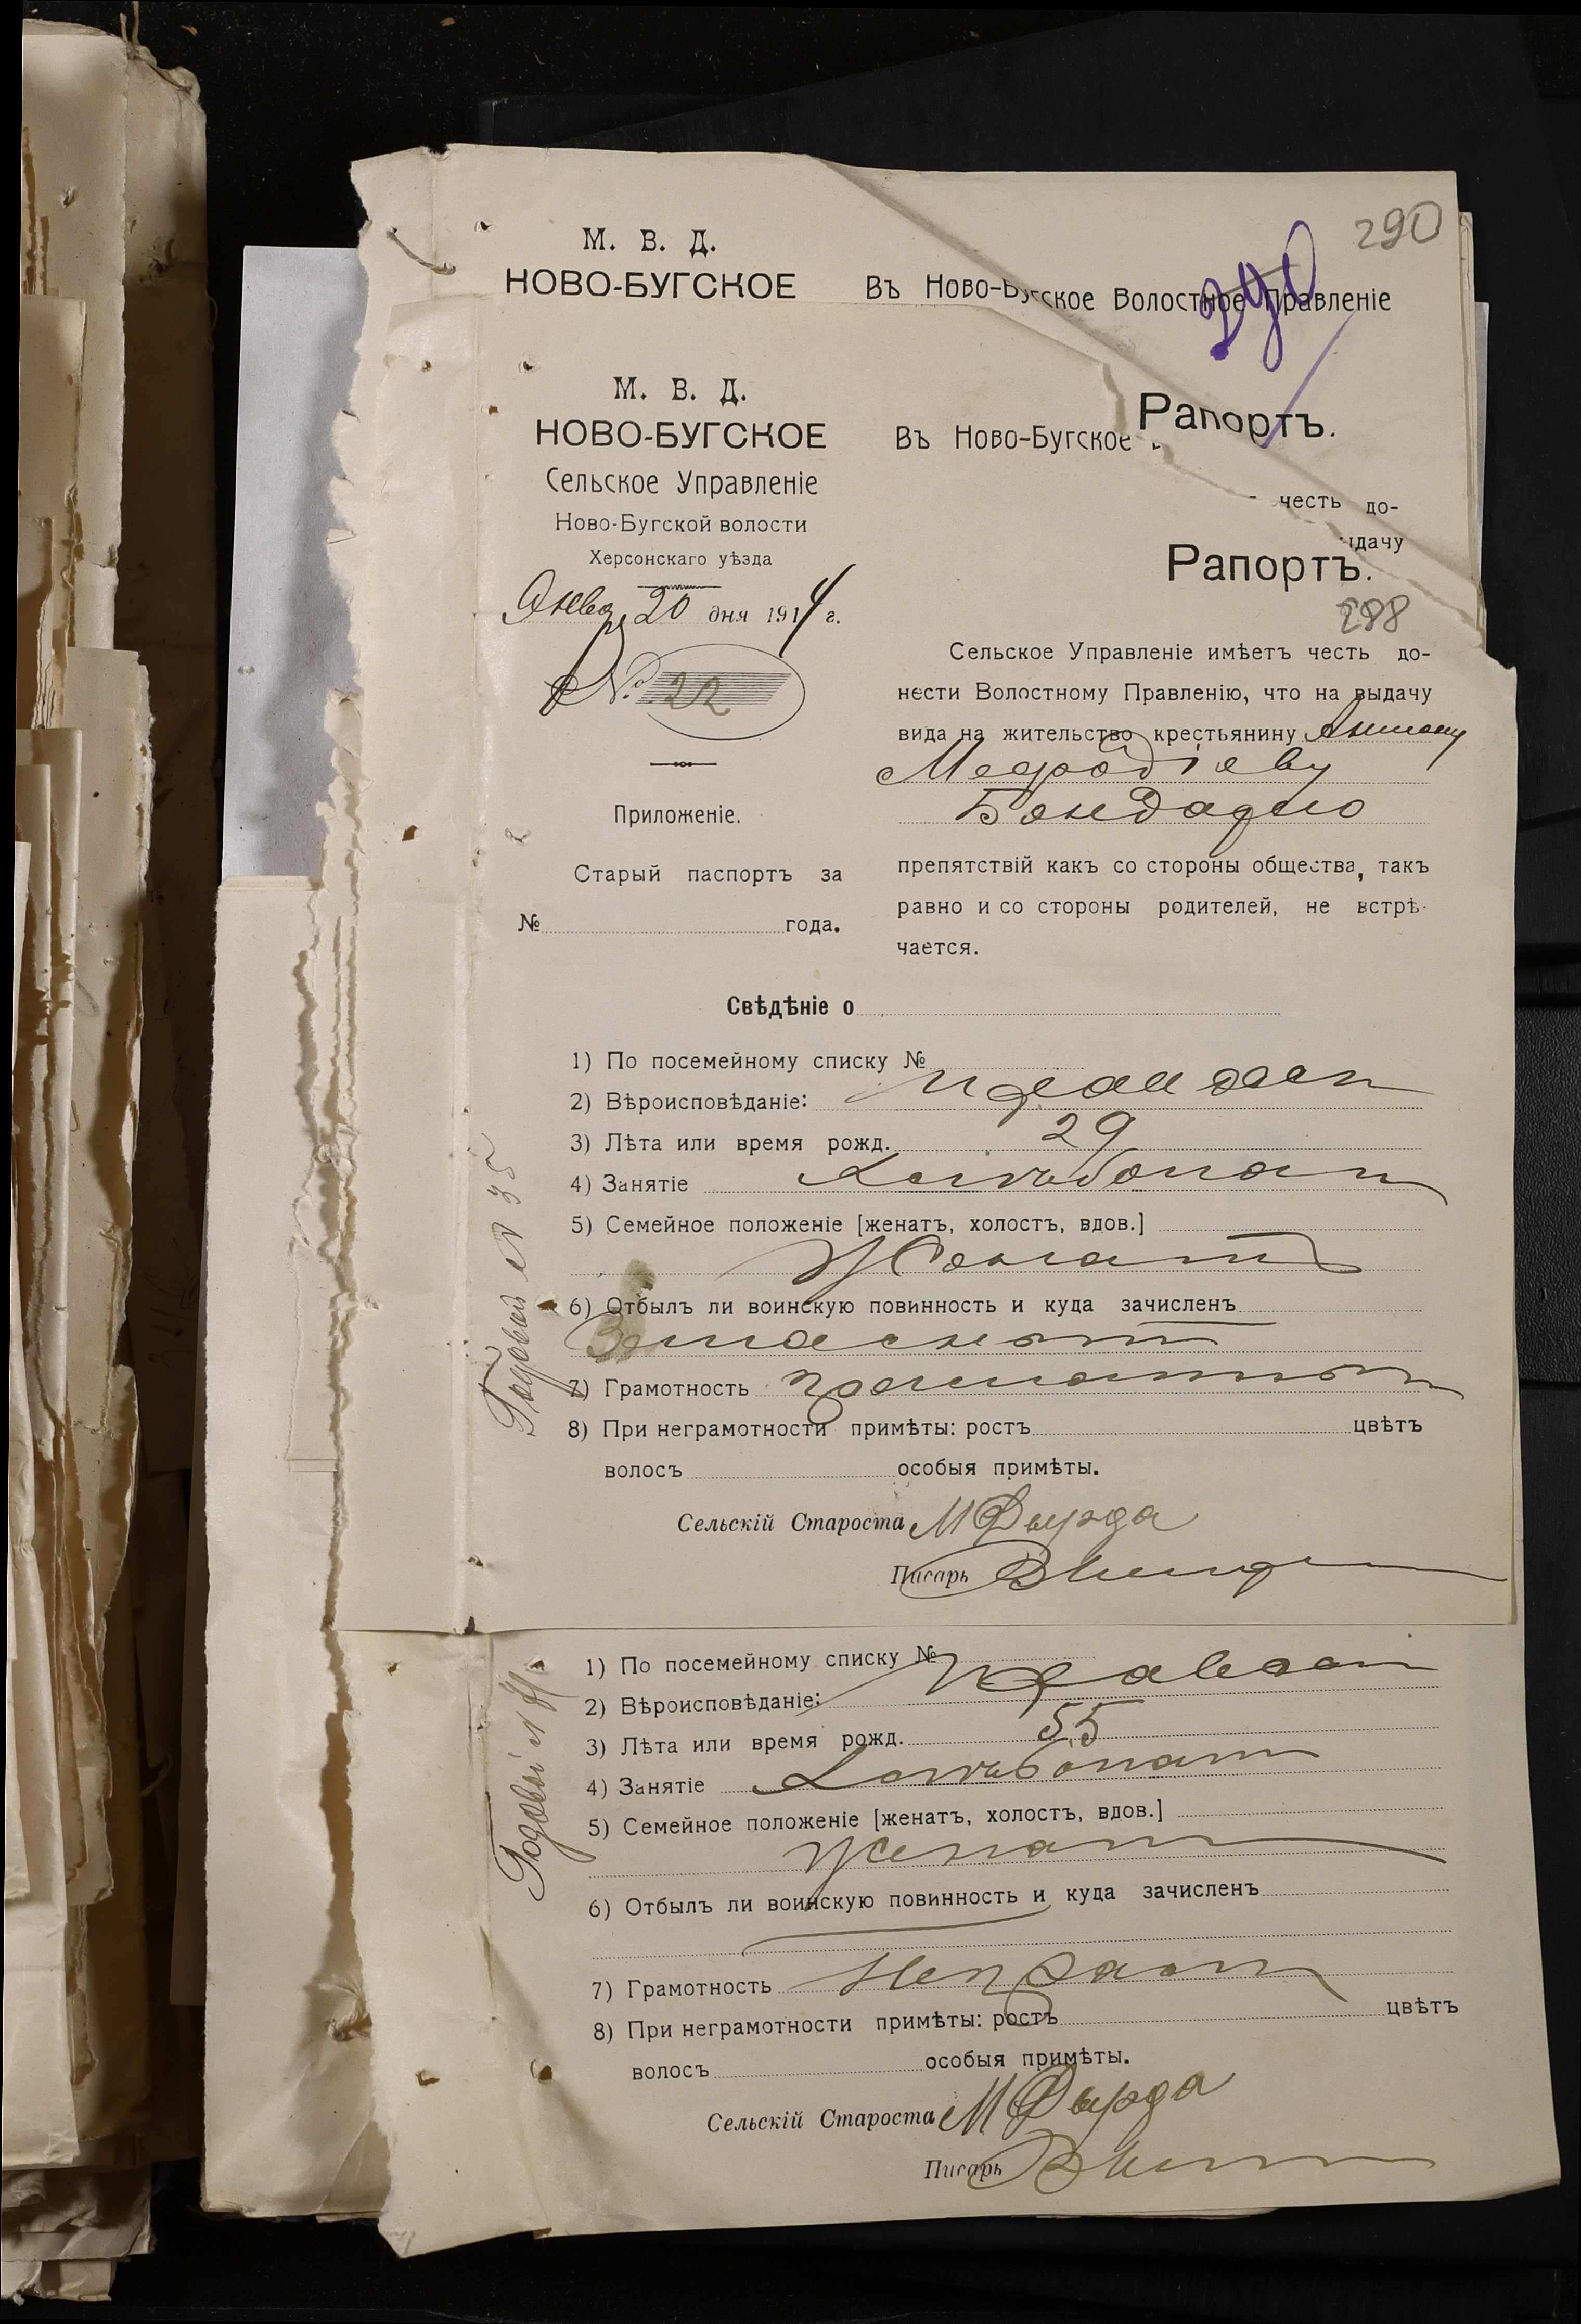 290
290
М. В. Д.
НОВО-БУГСКОЕ
Въ Ново-Бугское Волостное Правленіе
Рапортъ.
честь до-
ыдачу
М. В. Д.
НОВО-БУГСКОЕ
Сельское Управленіе
Ново-Бугской волости
Херсонскаго уѣзда
Янва 20 дня 1914 г.
№ 22
Приложеніе.
Старый паспортъ за
№ года.
Въ Ново-Бугское
Рапортъ.
288
Сельское Управленіе имѣетъ честь до-
нести Волостному Правленію, что на выдачу
вида на жительство крестьянину
Мефодіеву
Бондарю
препятствій какъ со стороны общества, такъ
равно и со стороны родителей, не встрѣ-
чается.
Свѣдѣніе о
1) По посемейному списку №
2) Вѣроисповѣданіе:
3) Лѣта или время рожд. 29
4) Занятіе хлѣбопаш
5) Семейное положеніе [женатъ, холостъ, вдов.]
Женатъ
6) Отбылъ ли воинскую повинность и куда зачисленъ
Запасной
7) Грамотность грамотный
8) При неграмотности примѣты: ростъ цвѣтъ
волосъ особыя примѣты.
Сельскій Староста М Дырда
Писарь
Годовой № 35
1) По посемейному списку №
2) Вѣроисповѣданіе: Правосл
3) Лѣта или время рожд. 55
4) Занятіе хлѣбопаш
5) Семейное положеніе [женатъ, холостъ, вдов.]
женат
6) Отбылъ ли воинскую повинность и куда зачисленъ
7) Грамотность Неграм
8) При неграмотности примѣты: ростъ цвѣтъ
волосъ особыя примѣты.
Сельскій Староста М Дырда
Писарь
Годовой №